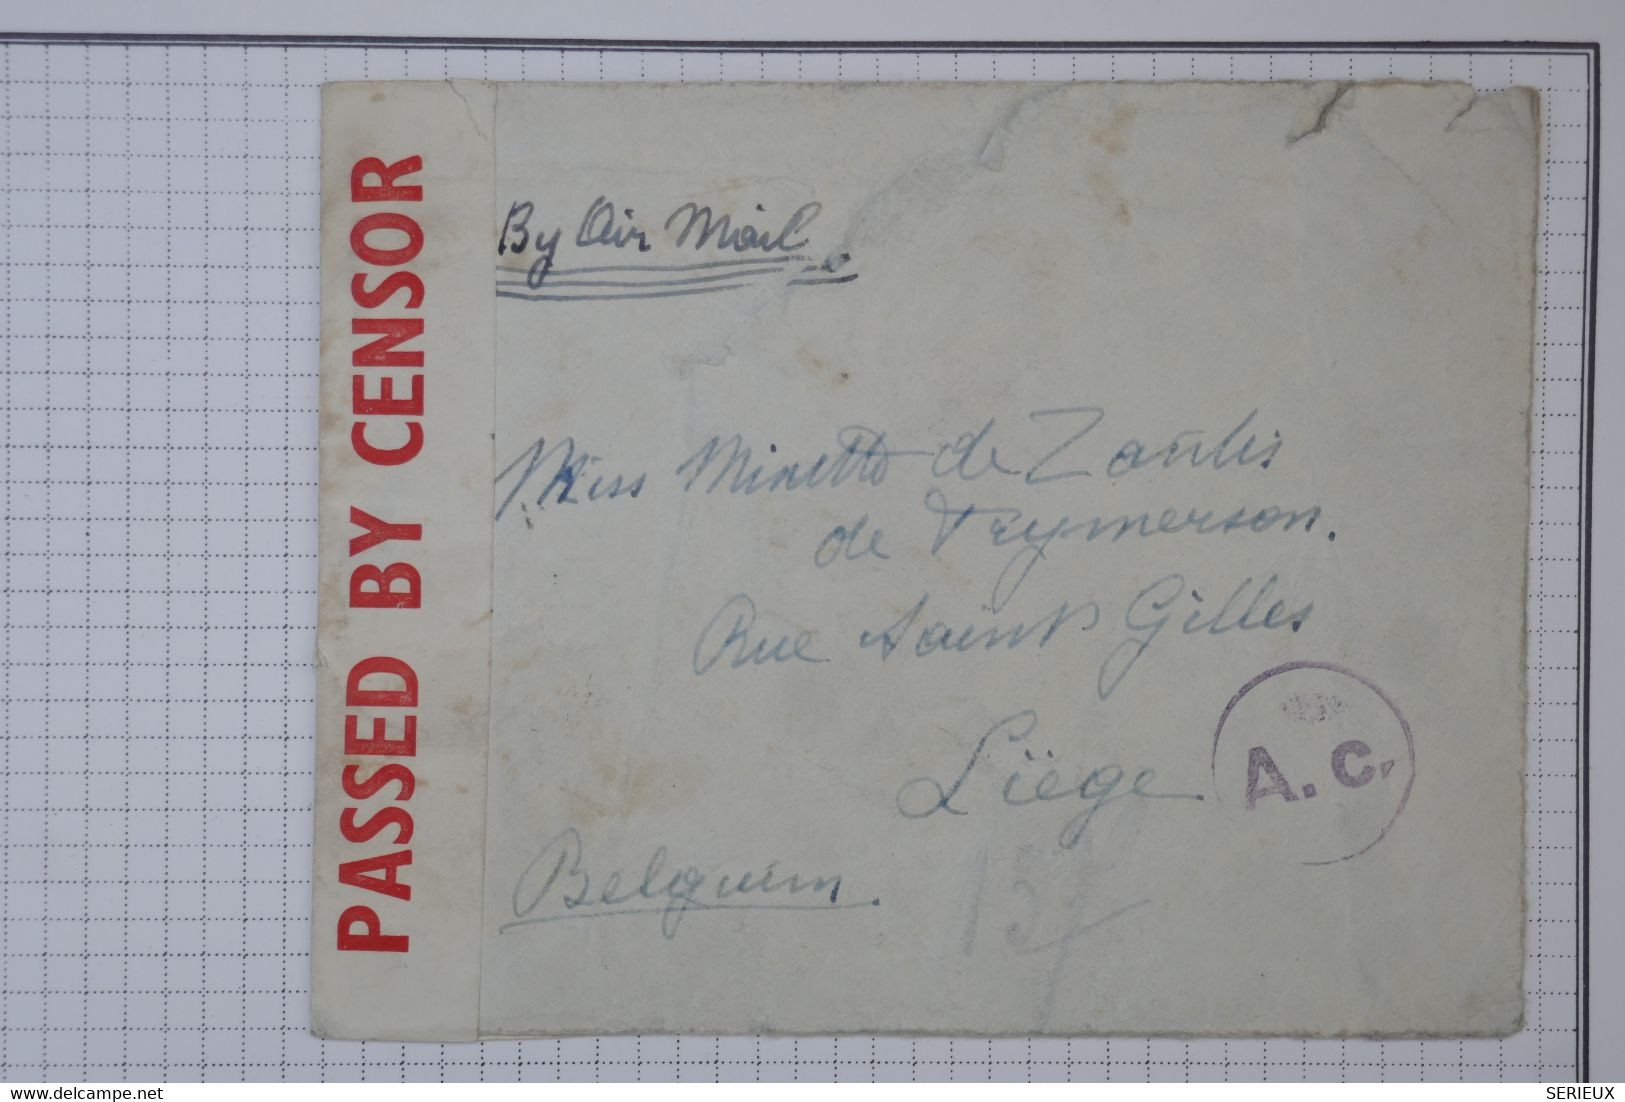 PASSED BY CENSOR
By Air Mail
Miss Minette de Zantis
de Frymerson.
Rue Saint Gilles
Liëge.
A. C.
Belguim.
Delcampe.net
SERIEUX